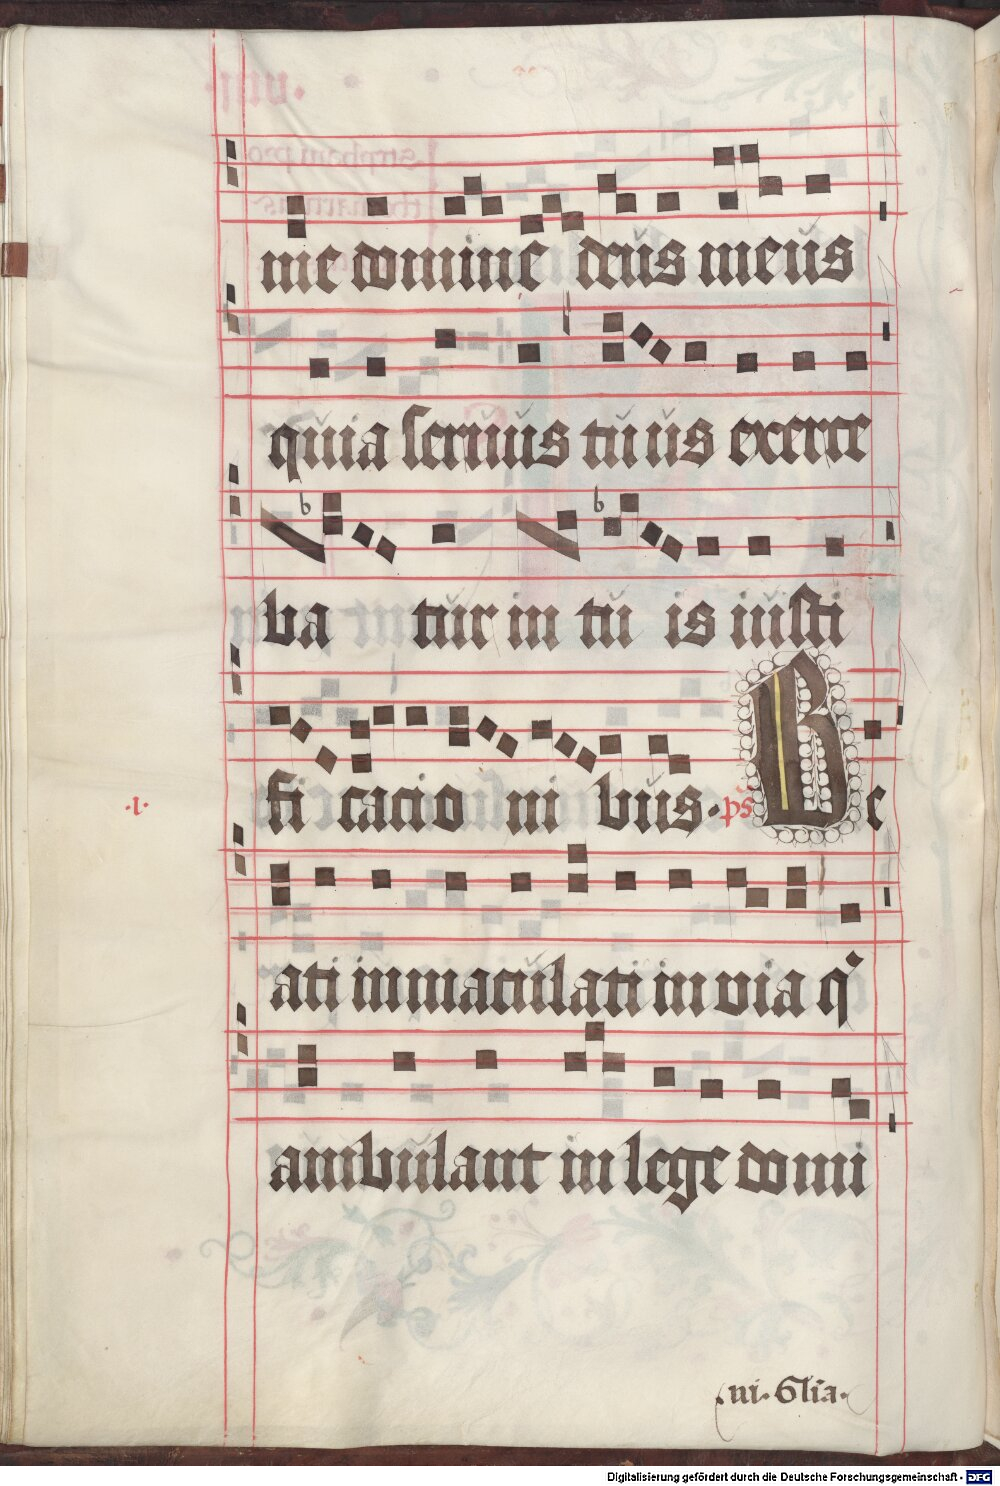 me domine deus meus
quia seruus tuus exerce
ba tur in tu is iusti
fi cacio ni bus · ps Be
·i·
ati immaculati in via q
ambulant in lege domi
ni · Glia ·
Digitalisierung gefördert durch die Deutsche Forschungsgemeinschaft - DFG